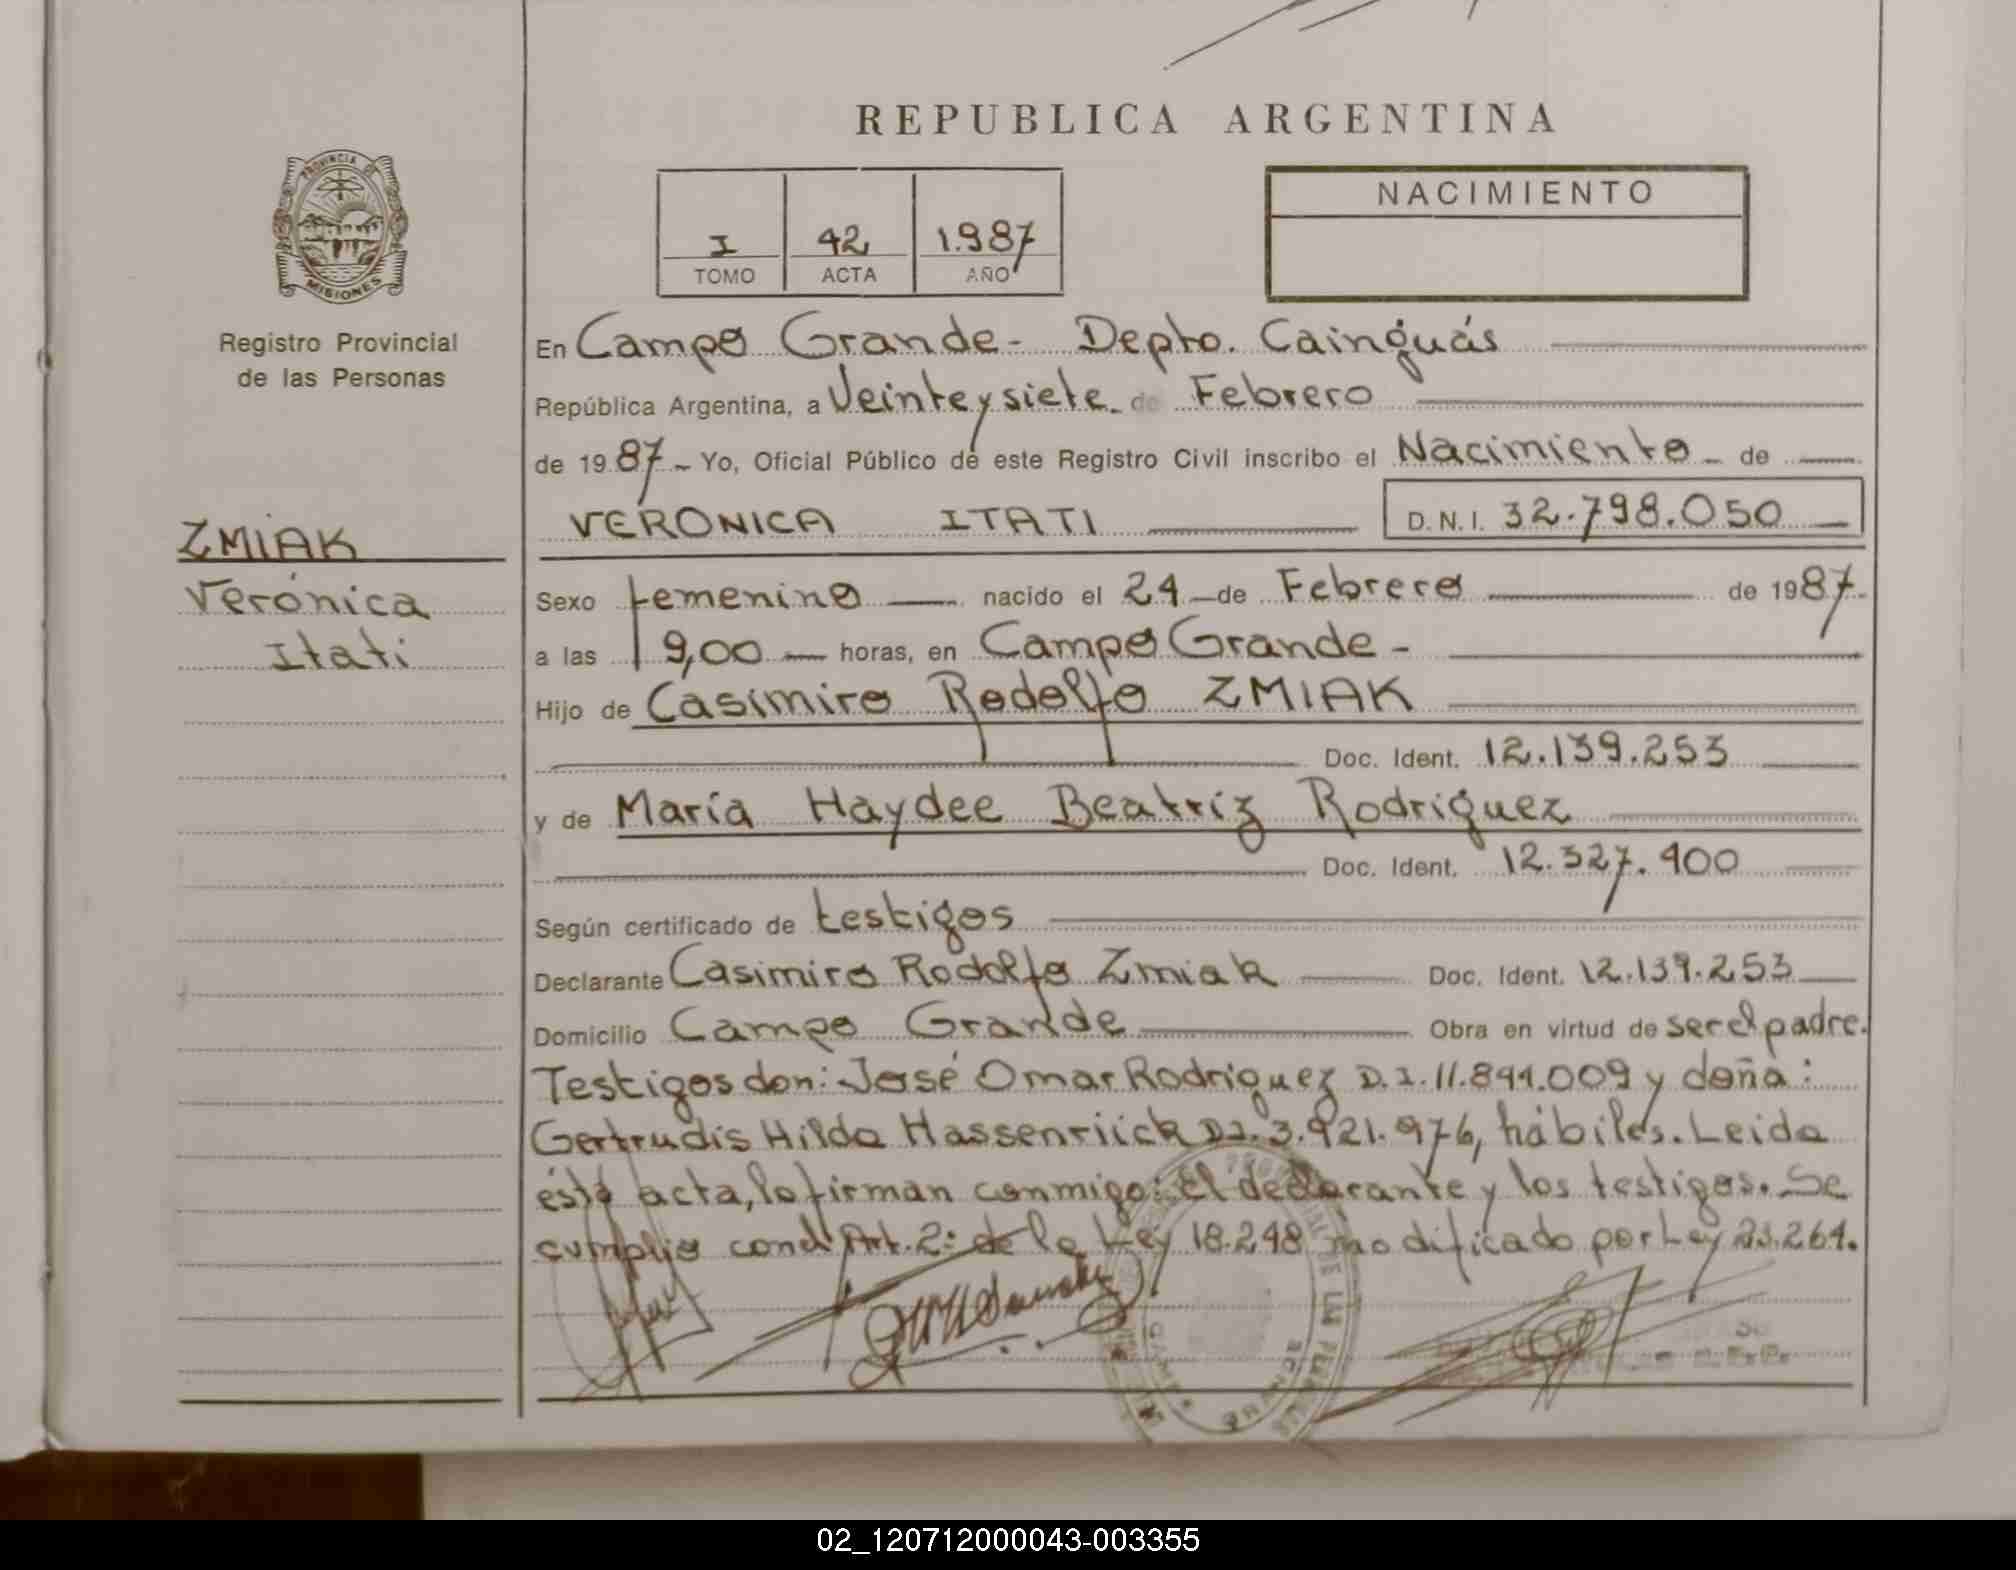 REPUBLICA ARGENTINA
PROVINCIA DE
MISIONES
Registro Provincial
de las Personas
I 42 1.987
TOMO ACTA AÑO
NACIMIENTO
En Campo Grande- Depto. Cainguás
República Argentina, a Veinteysiete. de Febrero
de 1987 - Yo, Oficial Público de este Registro Civil inscribo el Nacimiento - de
VERONICA ITATI D.N.I. 32.798.050
ZMIAK
Verónica
Itati
Sexo femenino nacido el 24 de Febrero de 1987
a las 9,00 horas, en Campo Grande-
Hijo de Casimiro Rodolfo ZMIAK
Doc. Ident. 12.139.253
y de María Haydee Beatriz Rodriguez
Doc. Ident. 12.327.400
Según certificado de testigos
Declarante Casimiro Rodolfo Zmiak Doc. Ident. 12.139.253
Domicilio Campo Grande Obra en virtud de ser el padre.
Testigos don: José Omar Rodriguez D.I. 11.844.009 y doña:
Gertrudis Hilda Hassenriick D.I. 3.921.976, hábiles. Leida
ésta acta, la firman conmigo: el declarante y los testigos. Se
cumplio con el Art. 2: de la Ley 18.248 modificado por Ley 23.264.
DE LAS PERSONAS
02_120712000043-003355